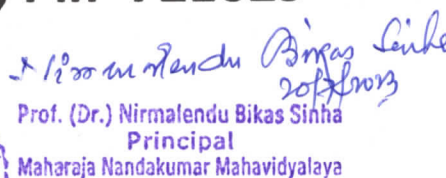 Nirmalendu Bikas Sinha
20/7/2023
Prof. (Dr.) Nirmalendu Bikas Sinha
Principal
Maharaja Nandakumar Mahavidyalaya